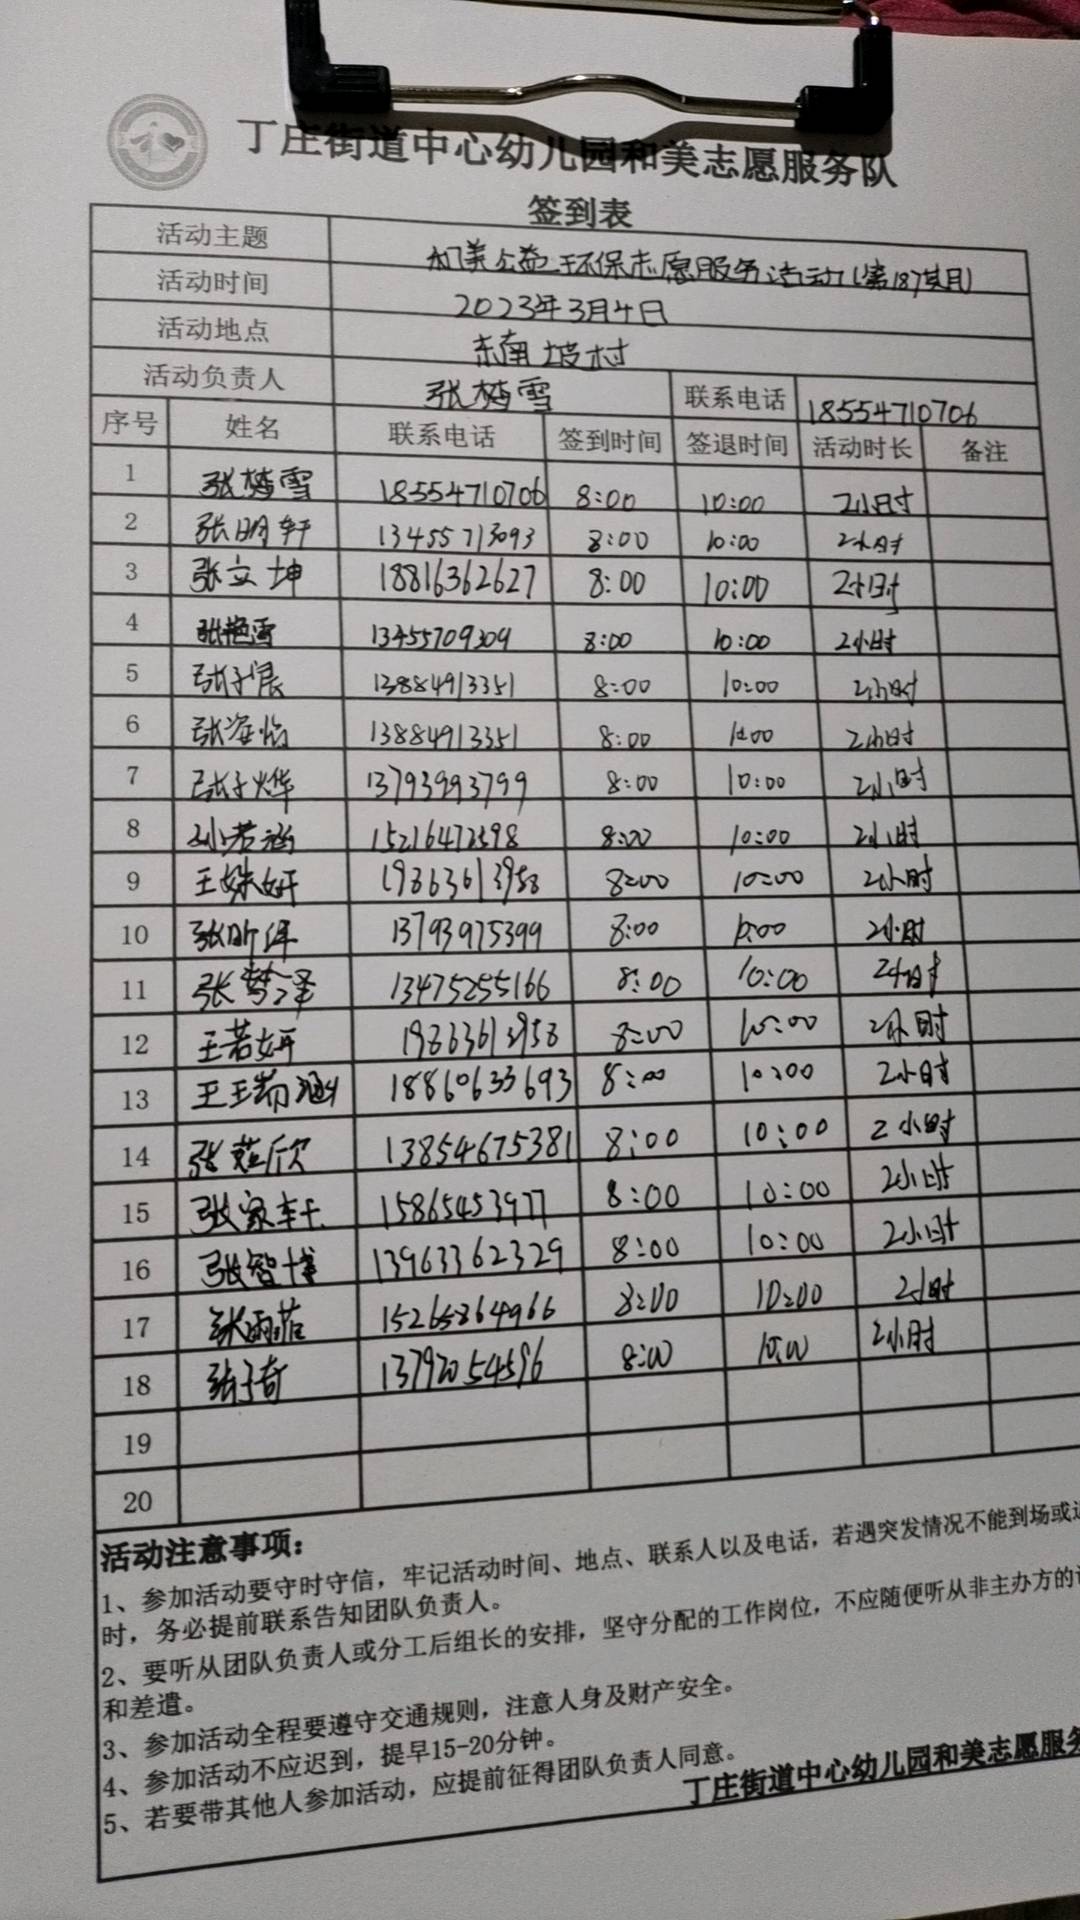 丁庄街道中心幼儿园和美志愿服务队
签到表
活动主题 和美公益环保志愿服务活动(第187期)
活动时间 2023年3月4日
活动地点 东南坡村
活动负责人 张梦雪 联系电话 18554710706
序号 姓名 联系电话 签到时间 签退时间 活动时长 备注
1 张梦雪 18554710706 8:00 10:00 2小时
2 张明轩 13455713093 8:00 10:00 2小时
3 张立坤 18816362627 8:00 10:00 2小时
4 张艳雪 13455709309 8:00 10:00 2小时
5 张子宸 13884913351 8:00 10:00 2小时
6 张姿怡 13884913351 8:00 10:00 2小时
7 张子烨 13793993799 8:00 10:00 2小时
8 孙若涵 15216472598 8:00 10:00 2小时
9 王姝妍 19863613958 8:00 10:00 2小时
10 张昕 13793975399 8:00 10:00 2小时
11 张梦泽 13475255166 8:00 10:00 2小时
12 王若妍 19863613958 8:00 10:00 2小时
13 王瑞涵 18860633693 8:00 10:00 2小时
14 张欣 13854675381 8:00 10:00 2小时
15 张家轩 15865453977 8:00 10:00 2小时
16 张智博 13963362329 8:00 10:00 2小时
17 张雨茹 15265864966 8:00 10:00 2小时
18 张子奇 13792054596 8:00 10:00 2小时
19
20
活动注意事项：
1、参加活动要守时守信，牢记活动时间、地点、联系人以及电话，若遇突发情况不能到场或
时，务必提前联系告知团队负责人。
2、要听从团队负责人或分工后组长的安排，坚守分配的工作岗位，不应随便听从非主办方的
和差遣。
3、参加活动全程要遵守交通规则，注意人身及财产安全。
4、参加活动不应迟到，提早15-20分钟。
5、若要带其他人参加活动，应提前征得团队负责人同意。
丁庄街道中心幼儿园和美志愿服务